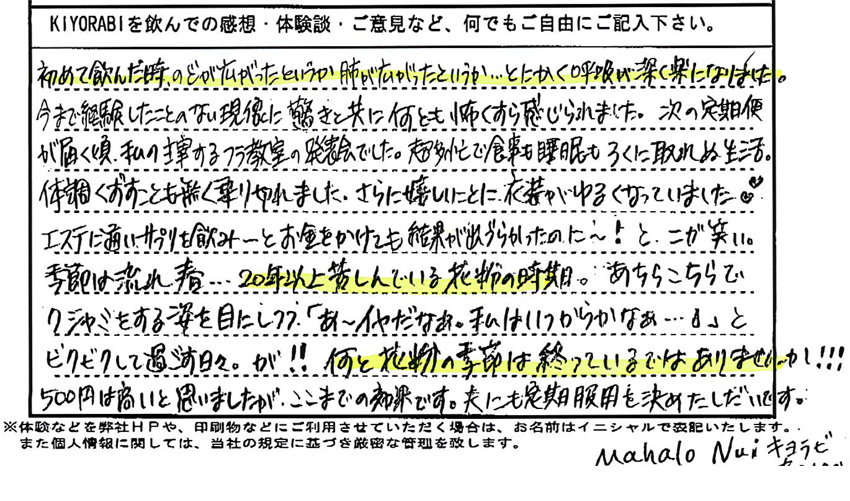 KIYORABIを飲んでの感想・体験談・ご意見など、何でもご自由にご記入下さい。
初めて飲んだ時のどが広がったというか肺が広がったというか…とにかく呼吸が深く楽になりました。
今まで経験したことのない現象に驚きと共に何とも怖くすら感じられました。次の定期便
が届く頃、私の主宰するフラ教室の発表会でした。超多忙で食事も睡眠もろくに取れぬ生活。
体調くずすことも無く乗り切れました。さらに嬉しいことに衣装がゆるくなっていました
エステに通いサプリを飲み〜とお金をかけても結果が出づらかったのに〜!と、ニガ笑い。
季節は流れ春…20年以上苦しんでいる花粉の時期。あちらこちらで
クシャミをする姿を目にしつつ「あ〜イヤだなぁ。私はいつからかなぁ…。」と
ビクビクして過ごす日々。が!!何と花粉の季節は終っているではありませんか!!!
500円は高いと思いましたが、ここまでの効果です。夫にも定期服用を決めたしだいです。
※体験などを弊社HPや、印刷物などにご利用させていただく場合は、お名前はイニシャルで表記いたします。
また個人情報に関しては、当社の規定に基づき厳密な管理を致します。
Mahalo Nui キヨラビ